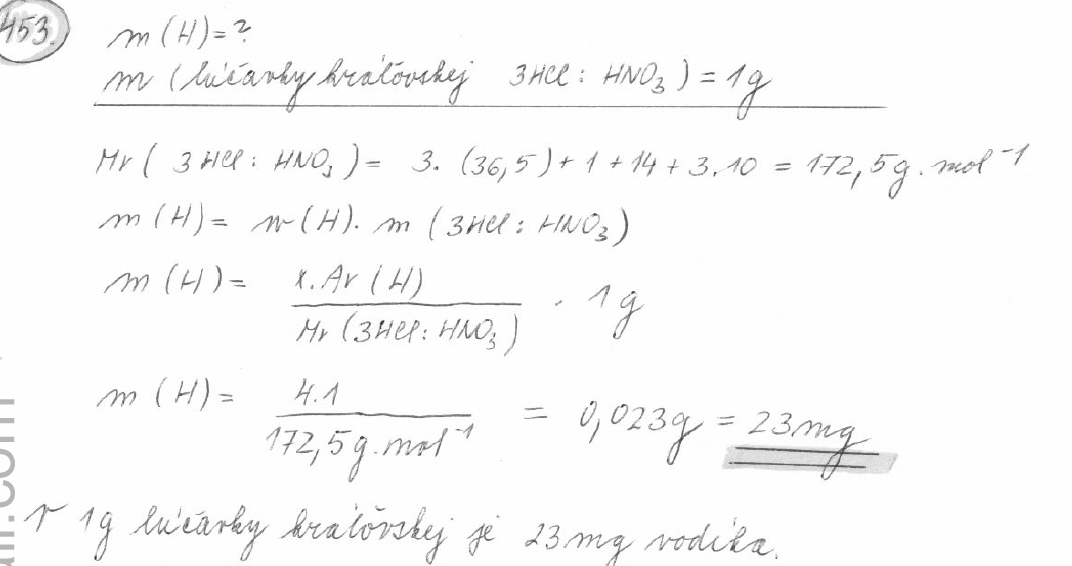 453.
m (H) = ?
m (lúčavky kráľovskej 3HCl : HNO₃) = 1g
Mr ( 3HCl : HNO₃ ) = 3. (36,5) + 1 + 14 + 3.10 = 172,5g. mol⁻¹
m (H) = w (H). m (3HCl : HNO₃)
m (H) = x. Ar (H) / Mr (3HCl : HNO₃) . 1g
m (H) = 4.1 / 172,5g. mol⁻¹ = 0,023g = 23mg
V 1g lúčavky kráľovskej je 23mg vodíka.